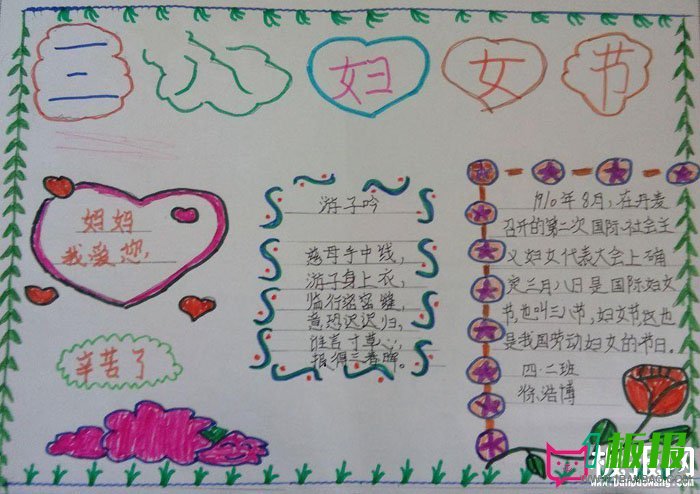 三八妇女节
妈妈
我爱您,
辛苦了
游子吟
慈母手中线,
游子身上衣,
临行密密缝,
意恐迟迟归,
谁言寸草心,
报得三春晖。
1910年8月,在丹麦
召开的第二次国际社会主
义妇女代表大会上确
定三月八日是国际妇女
节,也叫三八节,妇女节,这也
是我国劳动妇女的节日。
四·二班
徐浩博
板报